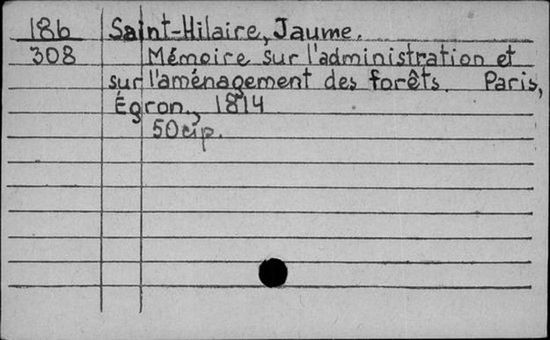 186 Saint-Hilaire, Jaume.
308 Mémoire sur l'administration et
sur l'aménagement des forêts. Paris,
Égron., 1814
50